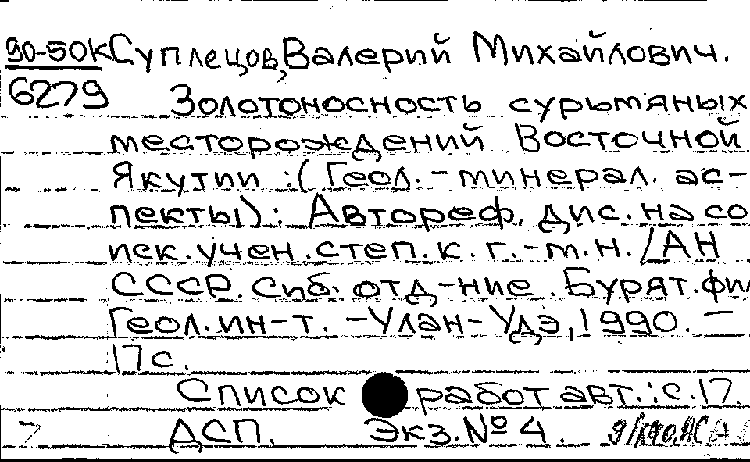 90-50К Суплецов, Валерий Михайлович.
6279 Золотоносность сурьмяных
месторождений Восточной
Якутии : (Геол.-минерал. ас-
пекты) : Автореф. дис. на со
иск. учен. степ. к. г.-м. н. / АН
СССР. Сиб. отд-ние. Бурят. фил
Геол. ин-т. - Улан-Удэ, 1990. -
17 с.
Список работ авт.: с. 17.
ДСП. Экз. № 4.